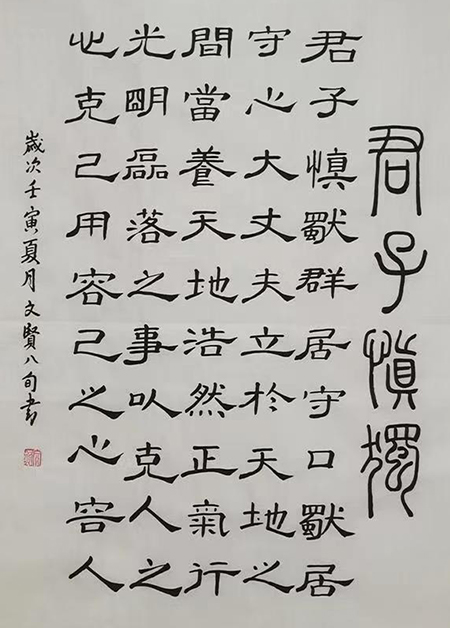 君子慎獨
君子慎獸群居守口獸居
守心大丈夫立於天地之
間當養天地浩然正氣行
光明磊落之事以克人之
心克己用容己之心容人
歲次壬寅夏月文賢八旬書